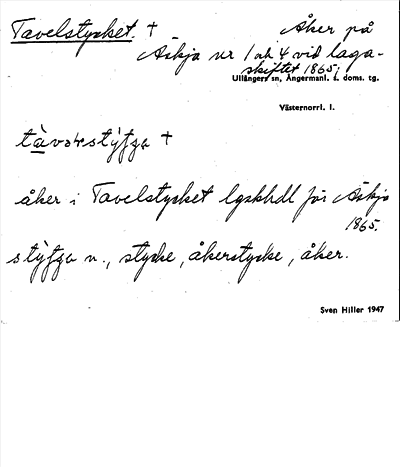 Tavelstycket. † Åker på
Äskja nr 1 och 4 vid laga-
skiftet 1865.
Ullångers sn, Ångermanl. s. doms. tg.
Västernorrl. l.
åker i Tavelstycket lgskhdl för Äskja
1865.
n., stycke, åkerstycke, åker.
Sven Hiller 1947